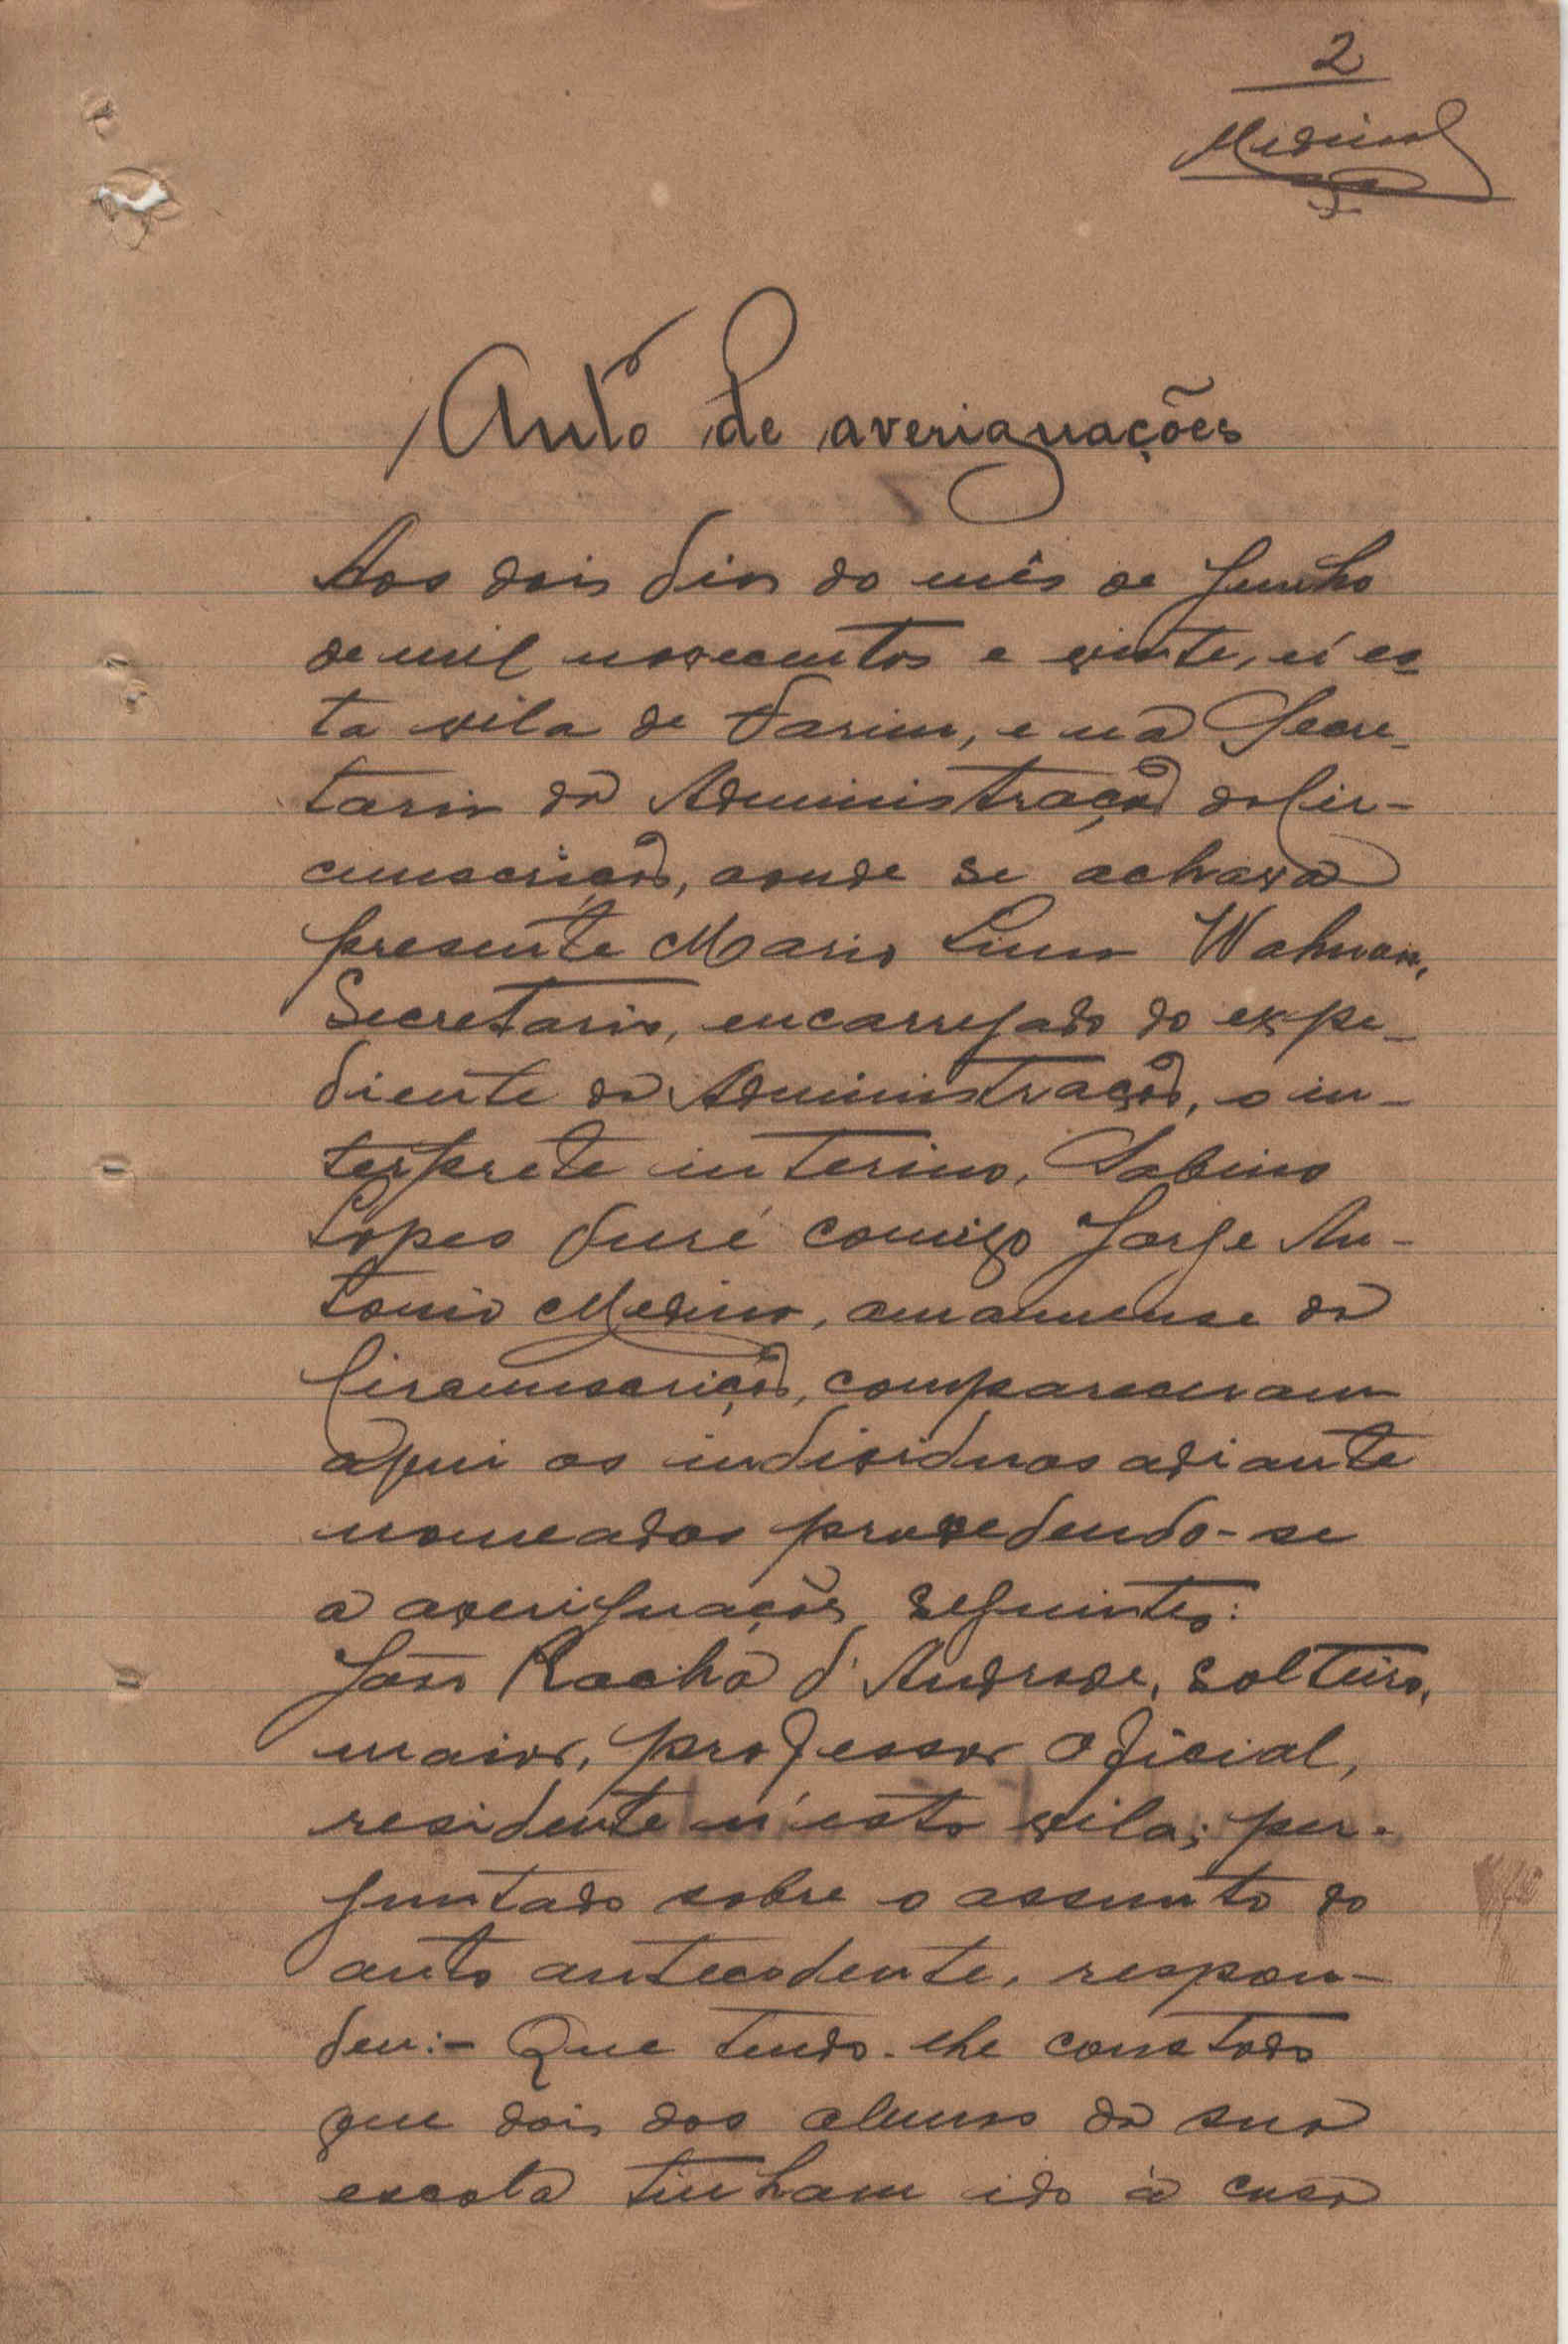 2
Medina
Auto de averiguações
Aos dois dias do mês de Junho
de mil novecentos e vinte, n'es-
ta vila de Farim, e na Secre-
taria da Administração da Cir-
cunscrição, aonde se achava
presente Mario Lima Wahnon,
Secretario, encarregado do expe-
diente da Administração, o in-
terprete interino, Sabino
Lopes Turé comigo Jorge An-
tonio Medina, amanuense da
Circunscrição, compareceram
aqui os individuos adiante
nomeados procedendo-se
a averiguações seguintes:
João Rocha d'Andrade, solteiro,
maior, professor oficial,
residente n'esta vila; per-
guntado sobre o assunto do
auto antecedente, respon-
deu:- Que tendo-lhe constado
que dois dos alunos da sua
escola tinham ido à casa